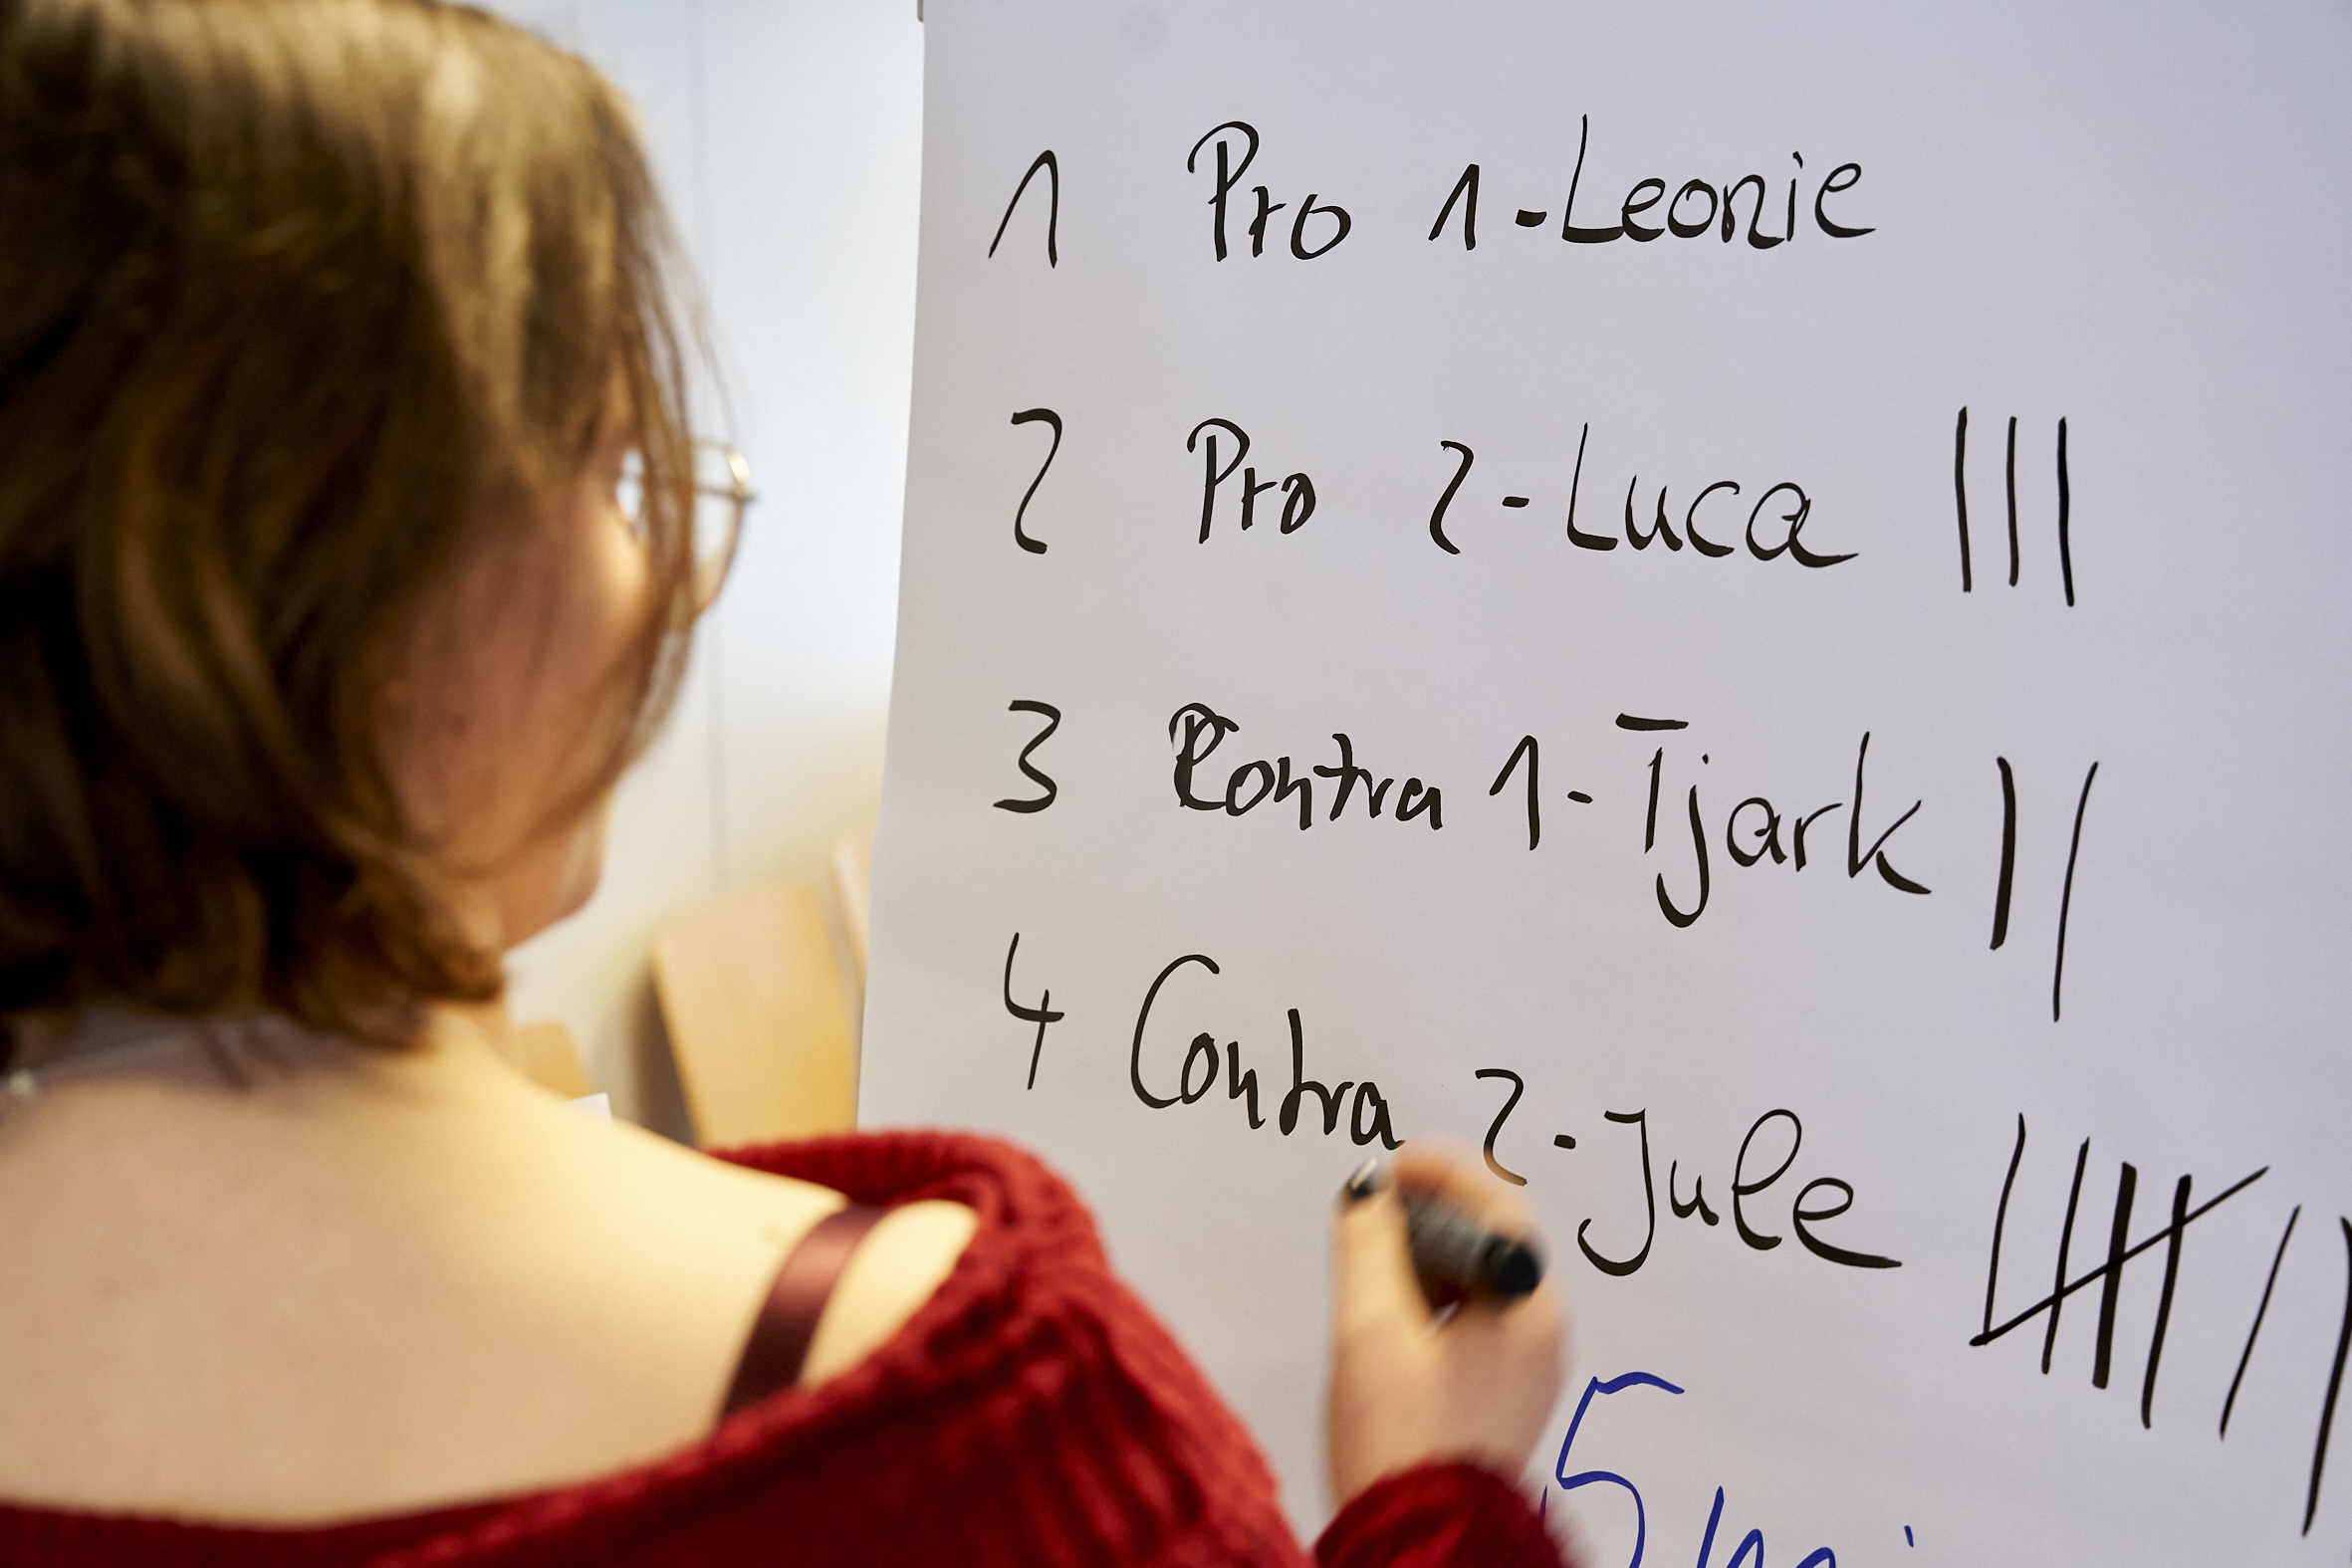 1 Pro 1-Leonie
2 Pro 2-Luca |||
3 Contra 1-Tjark ||
4 Contra 2-Jule |||| ||
5